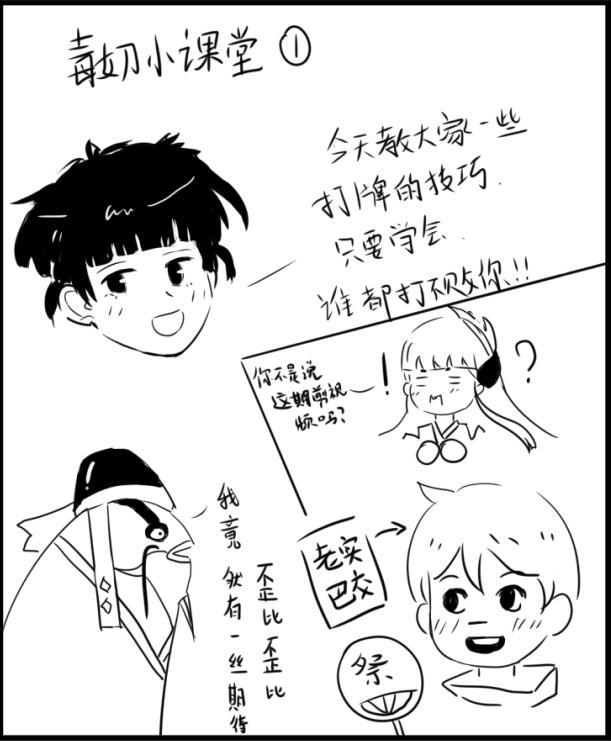 毒奶小课堂 ①
今天教大家一些
打牌的技巧.
只要学会.
谁都打不败你!!
你不是说
这期剪视
频吗?
!
?
我竟然有一丝期待
歪比歪比
老实
巴交
祭